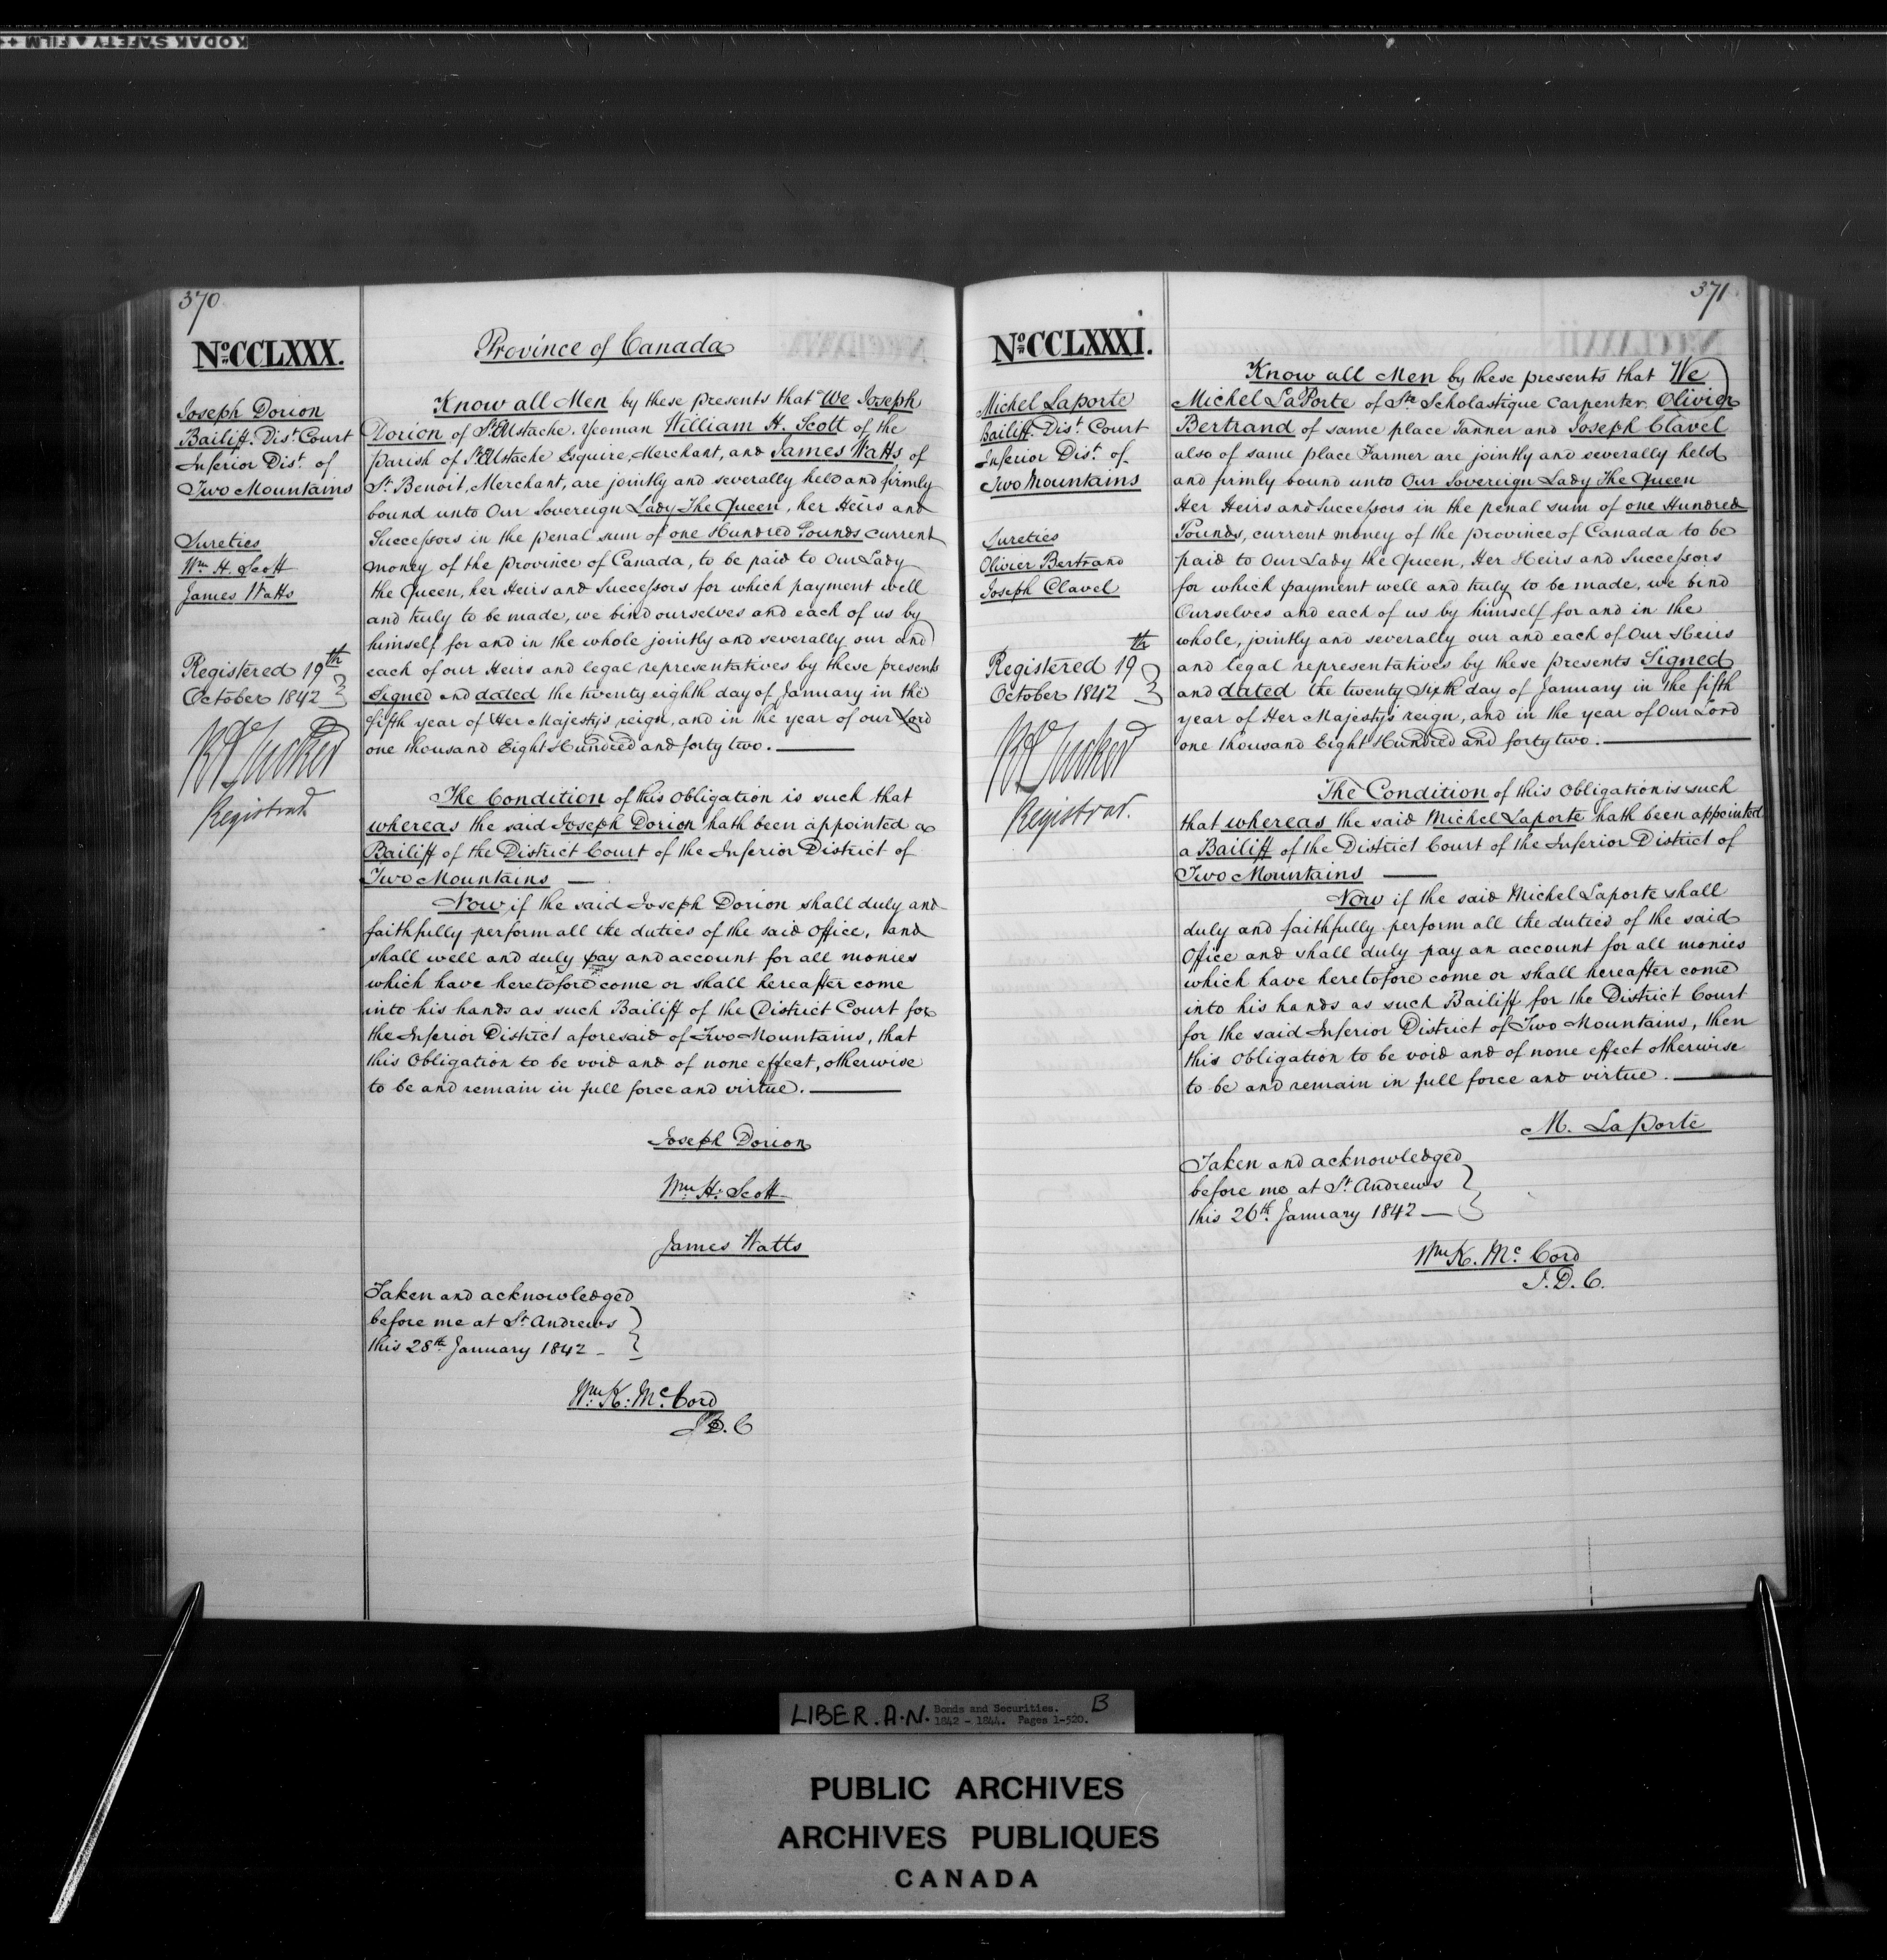 KODAK SAFETY FILM
370
No. CCLXXX.
Province of Canada
Joseph Dorion
Bailiff. Dist. Court
Inferior Dist. of
Two Mountains
Sureties
Wm H. Scott
James Watts
Registered 19th
October 1842
Registrar
Know all Men by these presents that We Joseph
Dorion of St. Eustache. Yeoman William H. Scott of the
parish of St. Eustache Esquire, Merchant, and James Watts of
St. Benoit, Merchant, are jointly and severally held and firmly
bound unto Our Sovereign Lady The Queen, her Heirs and
Successors in the penal sum of one Hundred Pounds current
money of the province of Canada, to be paid to Our Lady
the Queen, her Heirs and Successors for which payment well
and truly to be made, we bind ourselves and each of us by
himself for and in the whole jointly and severally our and
each of our Heirs and legal representatives by these presents
Signed and dated the twenty eighth day of January in the
fifth year of Her Majesty's reign, and in the year of our Lord
one thousand Eight Hundred and forty two.
The Condition of this Obligation is such that
whereas the said Joseph Dorion hath been appointed a
Bailiff of the District Court of the Inferior District of
Two Mountains
Now if the said Joseph Dorion shall duly and
faithfully perform all the duties of the said Office, and
shall well and duly pay and account for all monies
which have heretofore come or shall hereafter come
into his hands as such Bailiff of the District Court for
the Inferior District aforesaid of Two Mountains, that
this Obligation to be void and of none effect, otherwise
to be and remain in full force and virtue.
Joseph Dorion
Wm H. Scott
James Watts
Taken and acknowledged
before me at St. Andrews
this 28th January 1842
Wm K. McCord
J.D.C
371
No. CCLXXXI.
Michel Laporte
Bailiff. Dist. Court
Inferior Dist. of
Two Mountains
Sureties
Olivier Bertrand
Joseph Clavel
Registered 19th
October 1842
Registrar.
Know all Men by these presents that We
Michel LaPorte of Ste Scholastique Carpenter. Olivier
Bertrand of same place Tanner and Joseph Clavel
also of same place Farmer are jointly and severally held
and firmly bound unto Our Sovereign Lady The Queen
Her Heirs and Successors in the penal sum of one Hundred
Pounds, current money of the province of Canada to be
paid to Our Lady the Queen, Her Heirs and Successors
for which payment well and truly to be made, we bind
Ourselves and each of us by himself for and in the
whole, jointly and severally our and each of Our Heirs
and legal representatives by these presents Signed
and dated the twenty Sixth day of January in the fifth
year of Her Majesty's reign, and in the year of Our Lord
one thousand Eight Hundred and forty two.
The Condition of this Obligation is such
that whereas the said Michel Laporte hath been appointed
a Bailiff of the District Court of the Inferior District of
Two Mountains
Now if the said Michel Laporte shall
duly and faithfully perform all the duties of the said
Office and shall duly pay an account for all monies
which have heretofore come or shall hereafter come
into his hands as such Bailiff for the District Court
for the said Inferior District of Two Mountains, then
this Obligation to be void and of none effect otherwise
to be and remain in full force and virtue.
M. LaPorte
Taken and acknowledged
before me at St. Andrews
this 26th January 1842
Wm K. McCord
J.D.C.
LIBER. A.N. Bonds and Securities. B
1842 - 1844. Pages 1-520.
PUBLIC ARCHIVES
ARCHIVES PUBLIQUES
CANADA